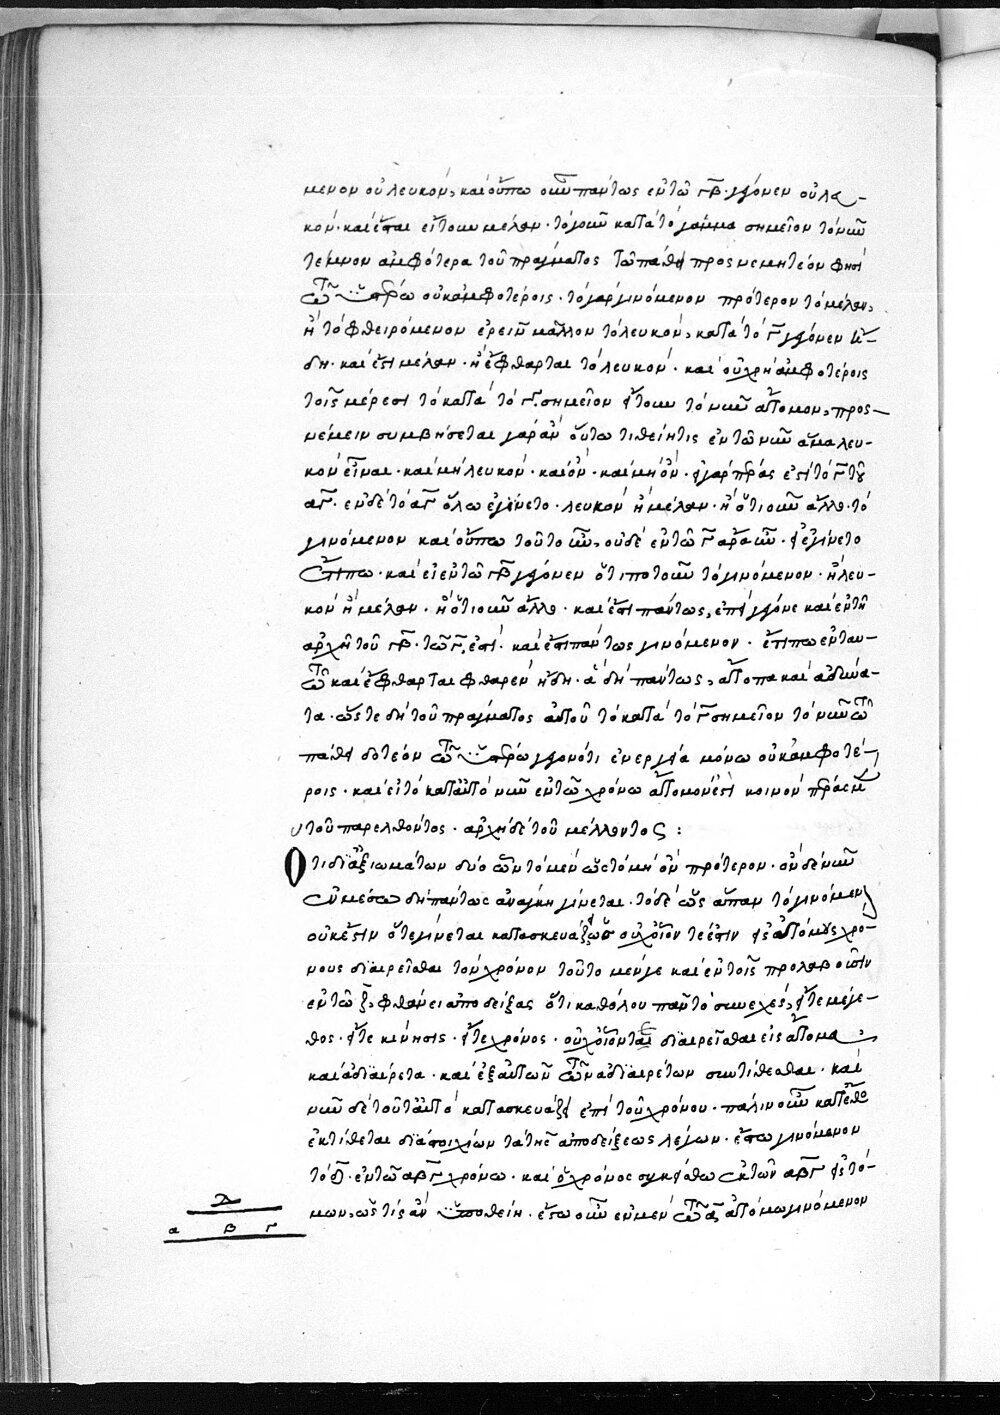 μενον οὐ λευκόν, καὶ οὔπω οὖν παντως ἐν τῶ ΓΒ· γέγονεν οὐ λευ-
κόν· καὶ ἔσται εἴτουν μέλαν· τὸ γοῦν κατὰ τὸ γάμμα σημεῖον τὸ νῦν
τέμνον ἀμφότερα τοῦ πράγματος τῶ πάθει προσνεμητέον φησὶ
τῶ ὑστέρω οὐκ ἀμφοτέροις· τὸ γὰρ γινόμενον πρότερον τὸ μέλαν,
ἢ τὸ φθειρόμενον ἐρεῖν μᾶλλον τὸ λευκόν, κατὰ τὸ Γ γέγονεν ἤ-
δη· καὶ ἔστι μέλαν· ἢ ἔφθαρται τὸ λευκόν· καὶ οὐ χρὴ ἀμφοτέροις
τοῖς μέρεσι τὸ κατὰ τὸ Γ σημεῖον εἴτουν τὸ νῦν ἄτομον, προσ-
νέμειν συμβήσεται γὰρ ἂν οὕτω τιθείη τις ἐν τῶ νῦν ἅμα λευ-
κὸν εἶναι· καὶ μὴ λευκόν· καὶ ὂν· καὶ μὴ ὄν· εἰ γὰρ πέρας ἐστὶ τὸ Γ τοῦ
ΑΓ· ἐν δὲ τὸ ΑΓ ὅλω ἐγίνετο· λευκὸν ἢ μέλαν· ἢ ὁτιοῦν ἄλλο· τὸ
γινόμενον καὶ οὔπω τοῦτο ὂν, οὐδὲ ἐν τῶ Γ ἄρα ἦν· εἰ ἐγίνετο
ἔτι πω· καὶ εἰ ἐν τῶ ΓΒ γέγονεν ὅτι ποτοῦν τὸ γινόμενον· ἢ λευ-
κὸν ἢ μέλαν· ἢ ὁτιοῦν ἄλλο· καὶ ἔστι πάντως, ἐπεὶ γέγονε καὶ ἐν τῆ
ἀρχῆ τοῦ ΓΒ· τῶ Γ, ἐστί· καὶ ἔστι πάντως γινόμενον· ἔτι πω ἐνταυ-
τῶ καὶ ἔφθαρται φθαρὲν ἤδη· ἃ δὴ πάντως, ἄτοπα καὶ ἀδύνα-
τα· ὥστε δὴ τοῦ πράγματος αὐτοῦ τὸ κατὰ τὸ Γ σημεῖον τὸ νῦν τῶ
πάθει δοτέον τῶ ὑστέρω γεγονότι ἐνεργεία μόνω οὐκ ἀμφοτέ-
ροις· καὶ εἰ τὸ κατ' αὐτὸ νῦν ἐν τῶ χρόνω ἄτομον ἐστὶ κοινὸν πέρας μὲν
τοῦ παρελθόντος· ἀρχὴ δὲ τοῦ μέλλοντος :
Ὅτι δι' ἀξιωμάτων δύο ὧν τὸ μὲν ὡς τὸ μὴ ὂν πρότερον· ὂν δὲ νῦν
ἐν μέσω δὴ πάντως ἀνάγκη γίνεται· τὸ δὲ ὡς ἅπαν τὸ γινόμενον
οὐκ ἔστιν ὅτε γίνεται κατασκευάζει ὡς οὐχ οἷόν τέ ἐστιν εἰς ἀτόμους χρό-
νους διαιρεῖσθαι τὸν χρόνον τοῦτο μέν γε καὶ ἐν τοῖς προλαβοῦσιν
ἐν τῶ ζ, φθάνει ἀποδείξας ὅτι καθόλου πᾶν τὸ συνεχές, εἴτε μέγε-
θος· εἴτε κίνησις· εἴτε χρόνος· οὐχ οἷόν τε διαιρεῖσθαι εἰς ἄτομα
καὶ ἀδιαίρετα· καὶ ἐξ αὐτῶν τῶν ἀδιαιρέτων συντίθεσθαι· καὶ
νῦν δὲ τοῦτ' αὐτὸ κατασκευάζει ἐπὶ τοῦ χρόνου· πάλιν οὖν
ἐκτίθεται διὰ στοιχείων τὰ τῆς ἀποδείξεως λέγων· ἔστω γινόμενον
τὸ Δ· ἐν τῶ ΑΒΓ χρόνω· καὶ ὁ χρόνος συγκείσθω ἐκ τῶν ΑΒΓ εἰς ἀτό-
μων, ὥς τις ἂν ὑποθείη· ἔστω οὖν ἐν μὲν τῶ Α ἀτόμω γινόμενον
Δ
Α Β Γ